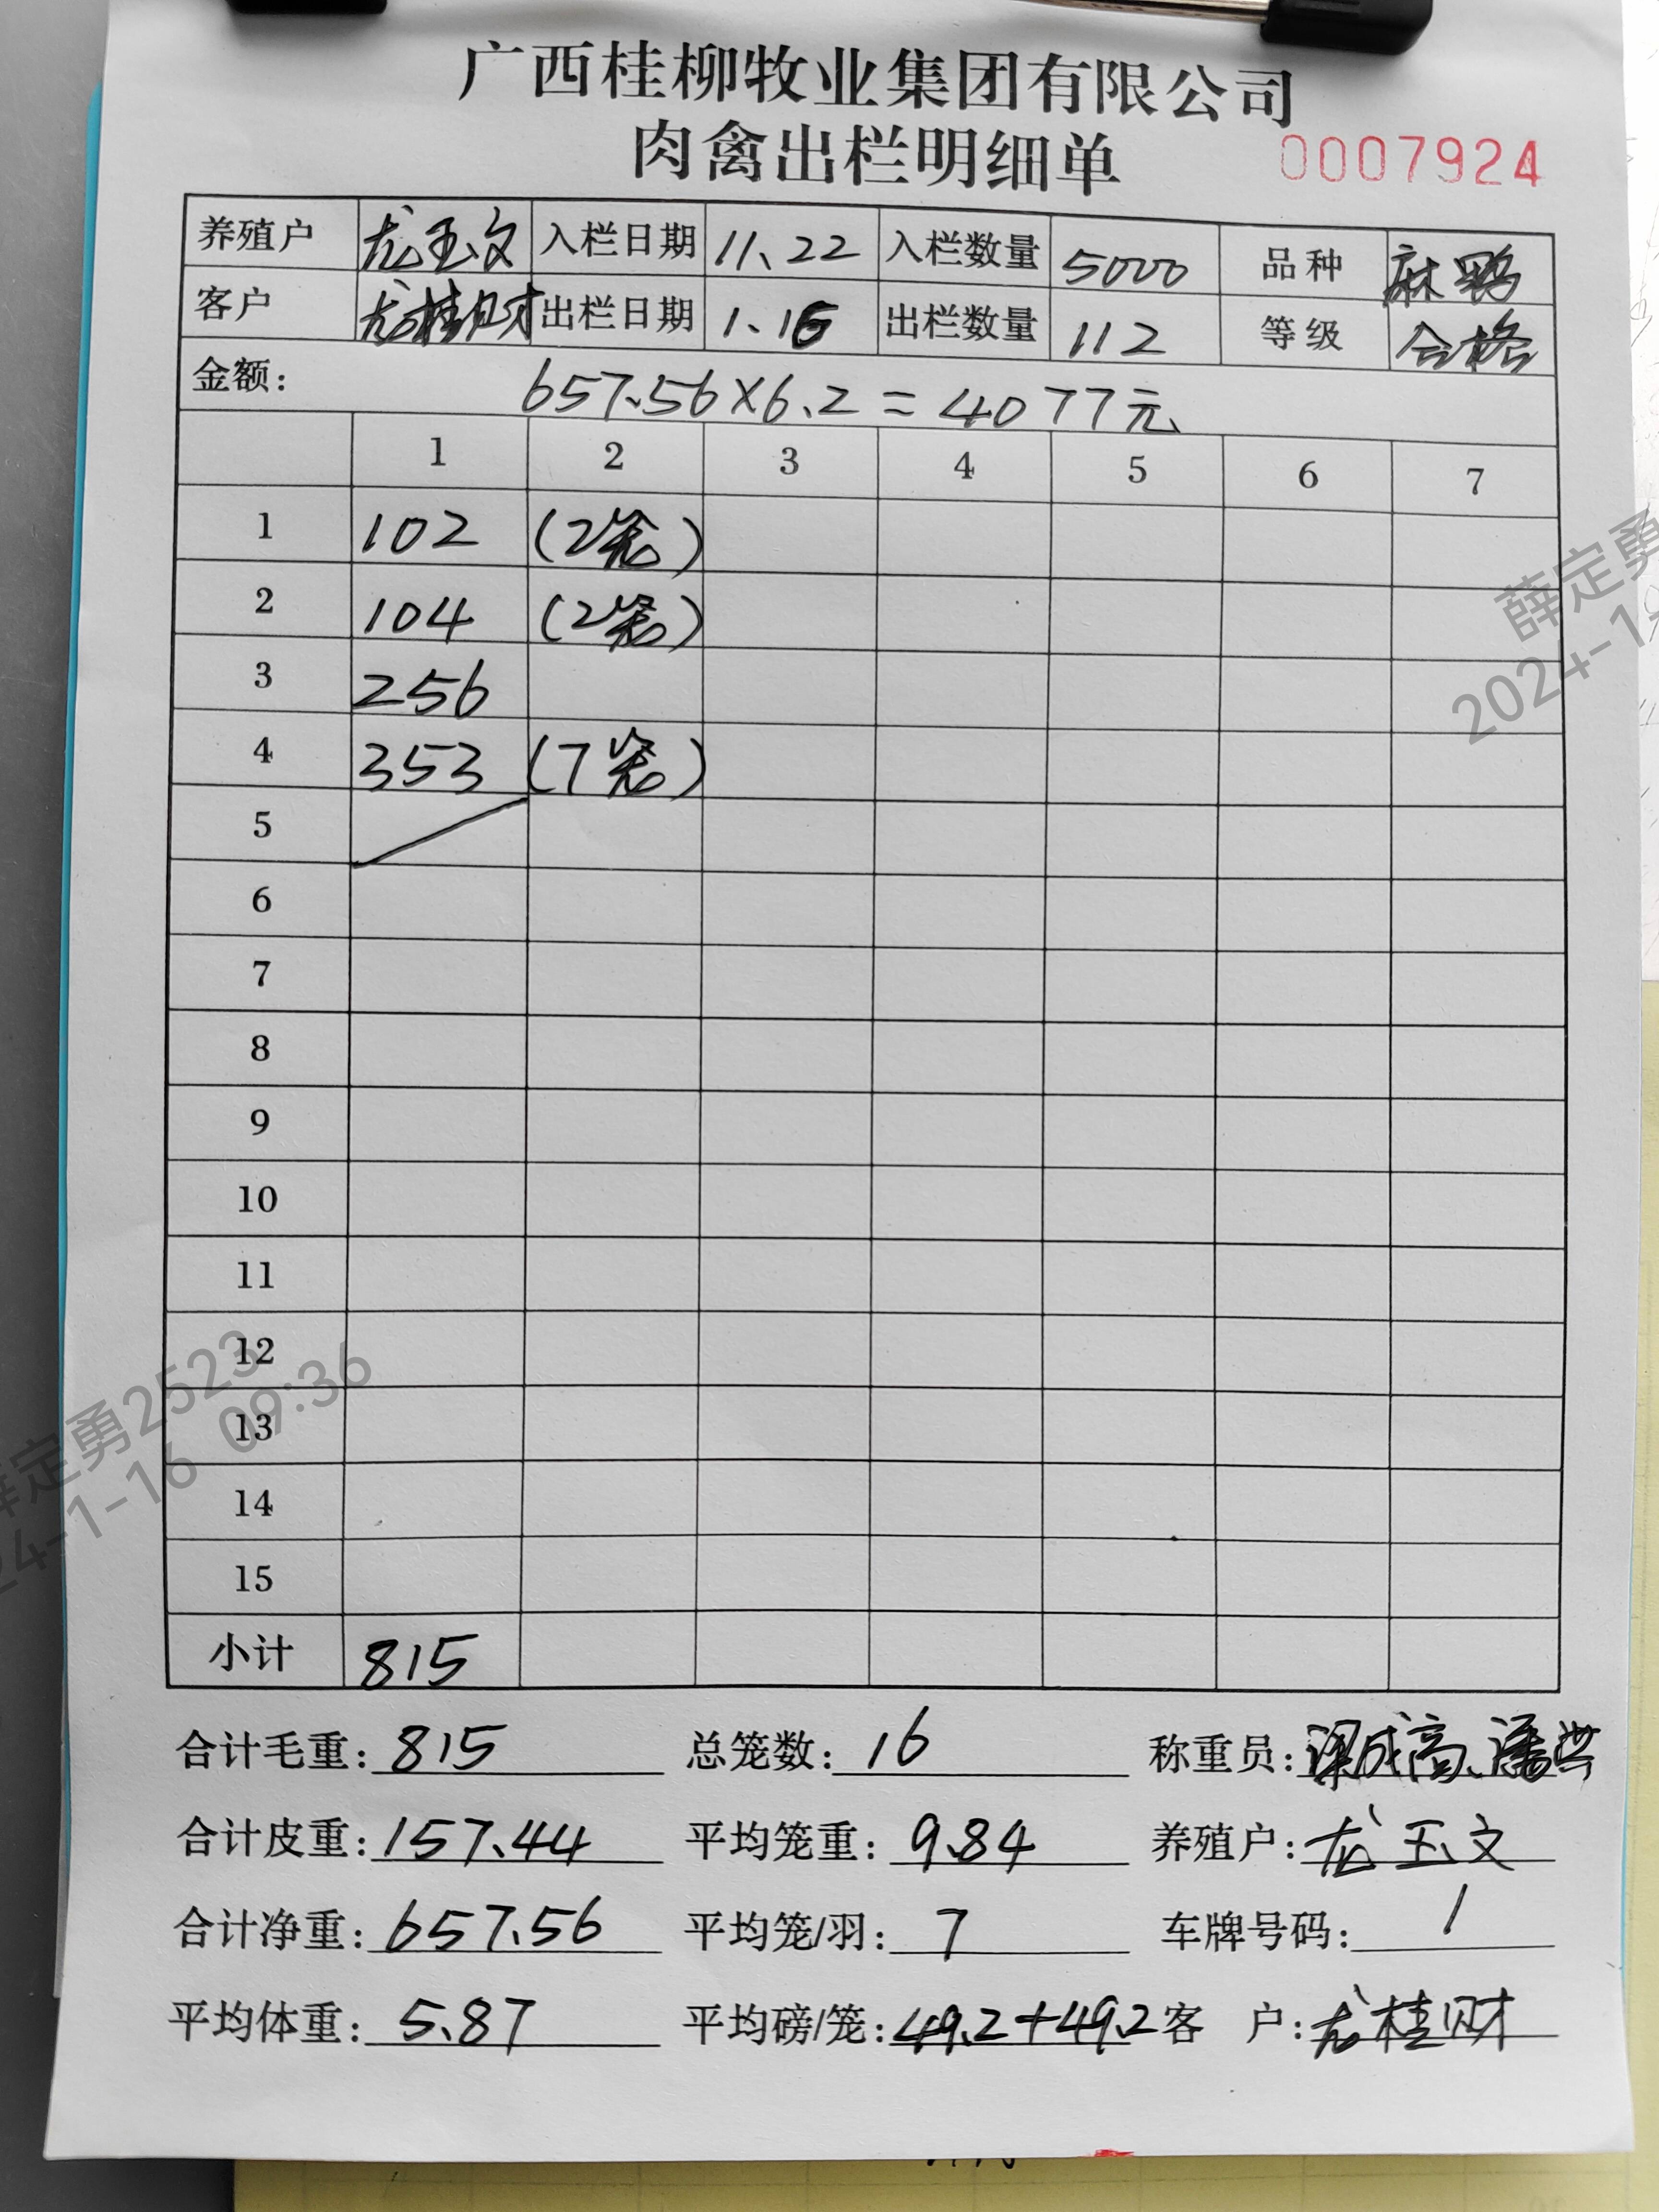 广西桂柳牧业集团有限公司
肉禽出栏明细单 0007924
养殖户 龙玉文 入栏日期 11、22 入栏数量 5000 品种 麻鸭
客户 龙桂财 出栏日期 1、16 出栏数量 112 等级 合格
金额: 657.56×6.2=4077元
1 2 3 4 5 6 7
1 102 (2笼)
2 104 (2笼)
3 256
4 353 (7笼)
5
6
7
8
9
10
11
12
13
14
15
小计 815
合计毛重: 815 总笼数: 16 称重员: 梁成高、潘
合计皮重: 157.44 平均笼重: 9.84 养殖户: 龙玉文
合计净重: 657.56 平均笼/羽: 7 车牌号码: /
平均体重: 5.87 平均磅/笼: 49.2+49.2 客 户: 龙桂财
薛定勇
2024-1
薛定勇2523
24-1-16 09:36